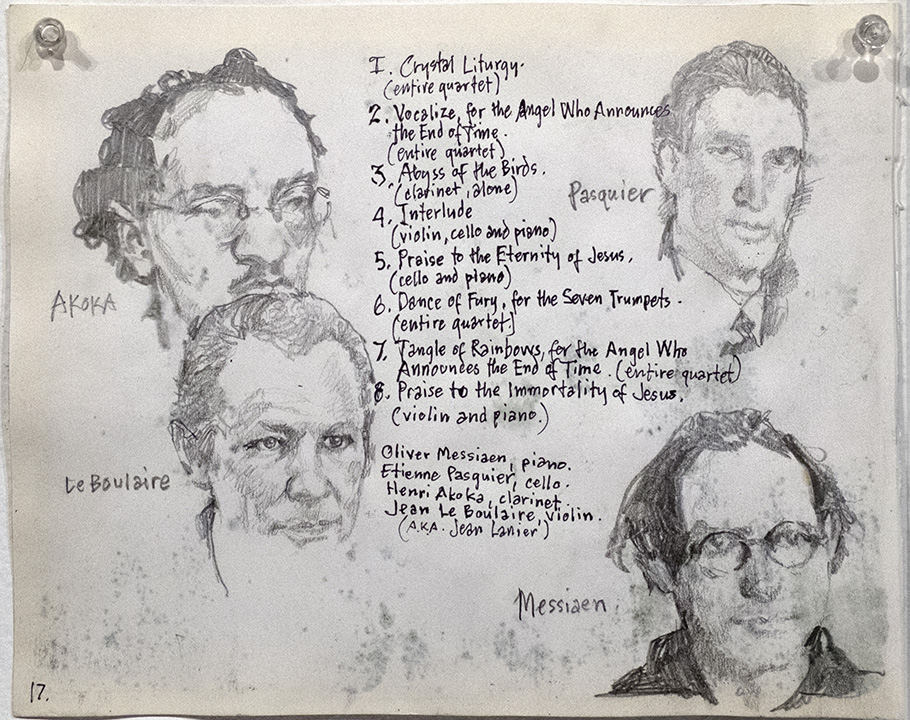 1. Crystal Liturgy.
(entire quartet)
2. Vocalize, for the Angel Who Announces
the End of Time.
(entire quartet)
3. Abyss of the Birds.
(clarinet, alone)
4. Interlude
(violin, cello and piano)
5. Praise to the Eternity of Jesus.
(cello and piano)
6. Dance of Fury, for the Seven Trumpets.
(entire quartet)
7. Tangle of Rainbows, for the Angel Who
Announces the End of Time. (entire quartet)
8. Praise to the Immortality of Jesus.
(violin and piano)
Oliver Messiaen, piano.
Etienne Pasquier, cello.
Henri Akoka, clarinet.
Jean Le Boulaire, violin.
(A.K.A. Jean Lanier)
Pasquier
AKOKA
Le Boulaire
Messiaen
17.